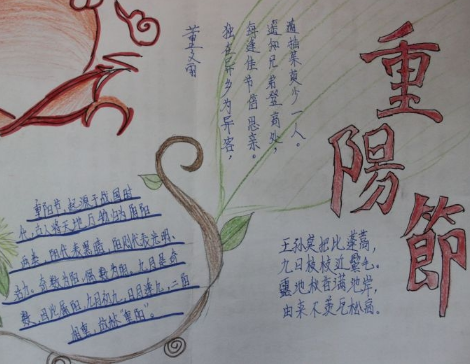 重陽節
独在异乡为异客，
每逢佳节倍思亲。
遥知兄弟登高处，
遍插茱萸少一人。
重阳节，起源于战国时
代，古人将天地万物归为阴阳
两类，阴代表黑暗，阳则代表光明、
活力。奇数为阳，偶数为阴。九是奇
数，因此属阳，九月初九，日月逢九，二阳
相重，故称“重阳”。
王孙莫把比蓬蒿，
九日枝枝近鬓毛。
露湿秋香满池岸，
由来不羡瓦松高。